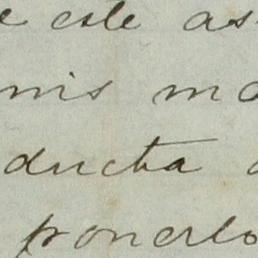 e este as
mis ma
ducta a
ponerlo